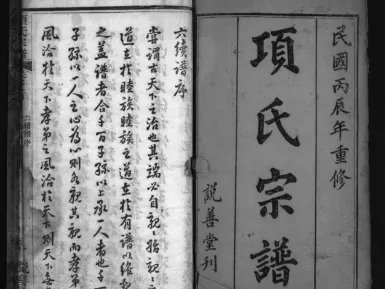 民國丙辰年重修
項氏宗譜
說善堂刊
六續譜序
嘗謂古天下之治也其端必自親始親之
道在於睦族睦族之道在於有譜以維
之蓋譜者合千百子孫以上承一人者也千
子孫以一人之心為心則各親其親而孝弟
風洽於天下孝弟之風洽於天下則天下無